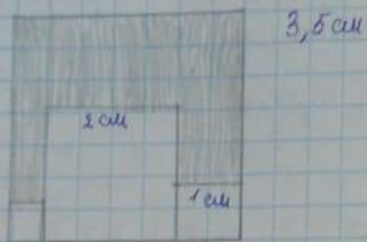 3,5 см
2 см
1 см